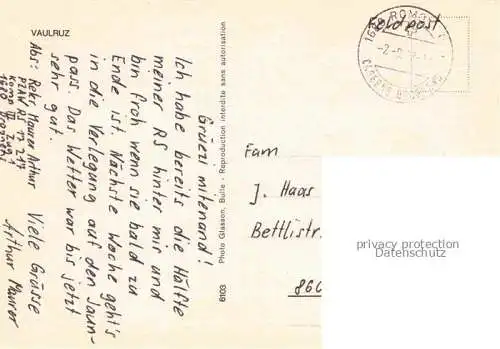 VAULRUZ
Grüezi mitenand!
Ich habe bereits die Hälfte
meiner RS hinter mir und
bin froh wenn sie bald zu
Ende ist. Nächste Woche geht's
in die Verlegung auf den Jaun-
pass. Das Wetter war bis jetzt
sehr gut.
Viele Grüsse
Arthur Maurer
Abs: Rekr. Maurer Arthur
Komp III Zug 1
1680 Romont
6103 Photo Glasson, Bulle - Reproduction interdite sans autorisation
Feldpost
1680 ROMONT
Fam
J. Haas
Bettlistr.
860
privacy protection
Datenschutz